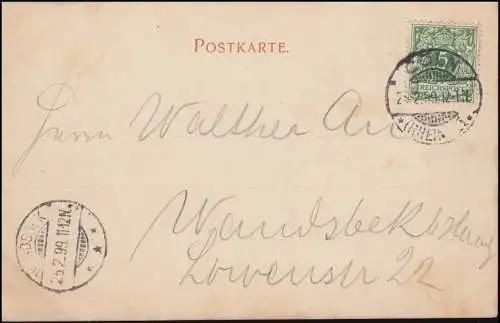 POSTKARTE.
5
REICHSPOST
CÖLN
(RHEIN)
Herrn Walther
Wandsbek
Löwenstr 22
25.2.99.11-12N.